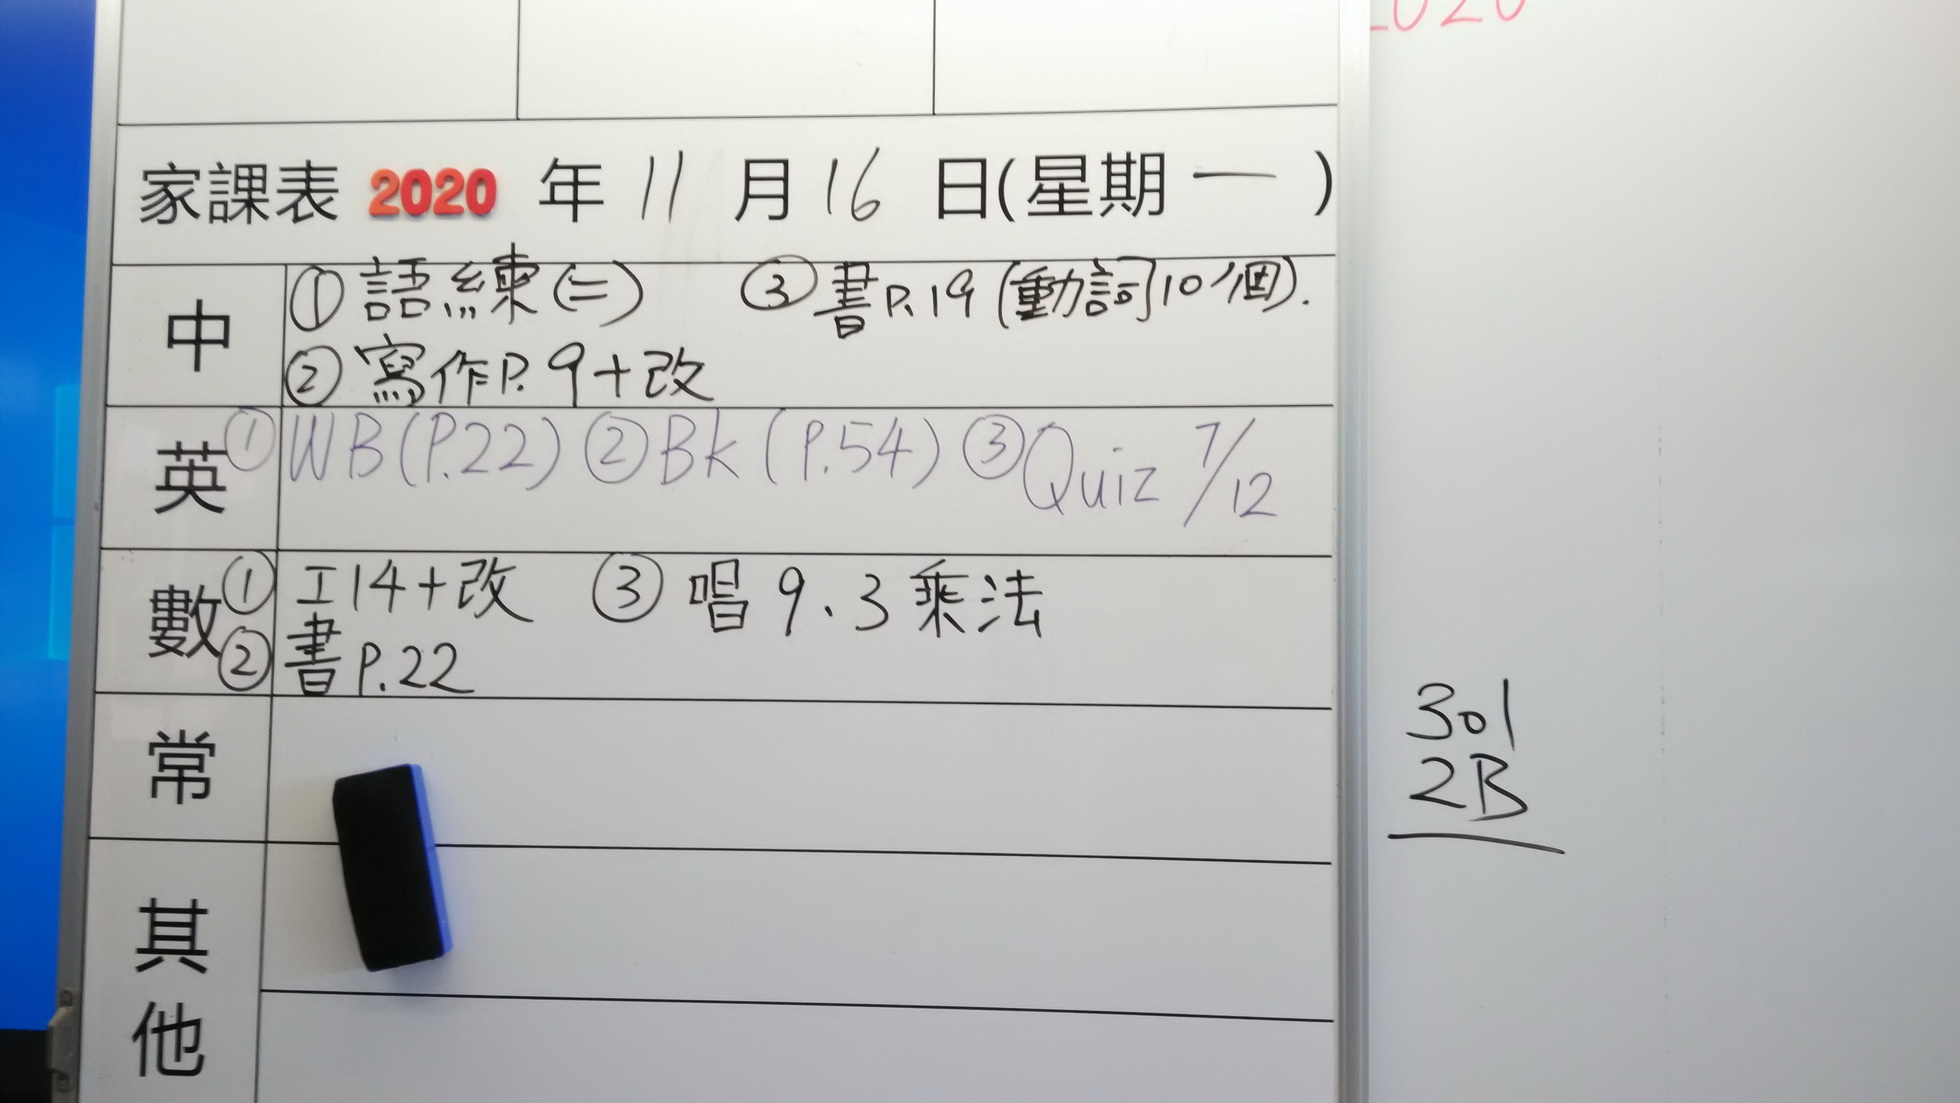 2020
家課表 2020 年 11 月 16 日(星期一)
中 ① 語練(二) ③ 書P.19 (動詞10個).
② 寫作P.9+改
英 ① WB(P.22) ② Bk (P.54) ③ Quiz 7/12
數 ① 工14+改 ③ 唱 9、3 乘法
② 書P.22
常
其
他
301
2B